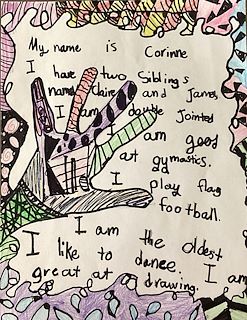 My name is Corinne
I have two Siblings
name Claire and James
I am double Jointed
I am good
at gymastics.
I play flag
football.
I am the oldest
I like to dance. I am
great at drawing.